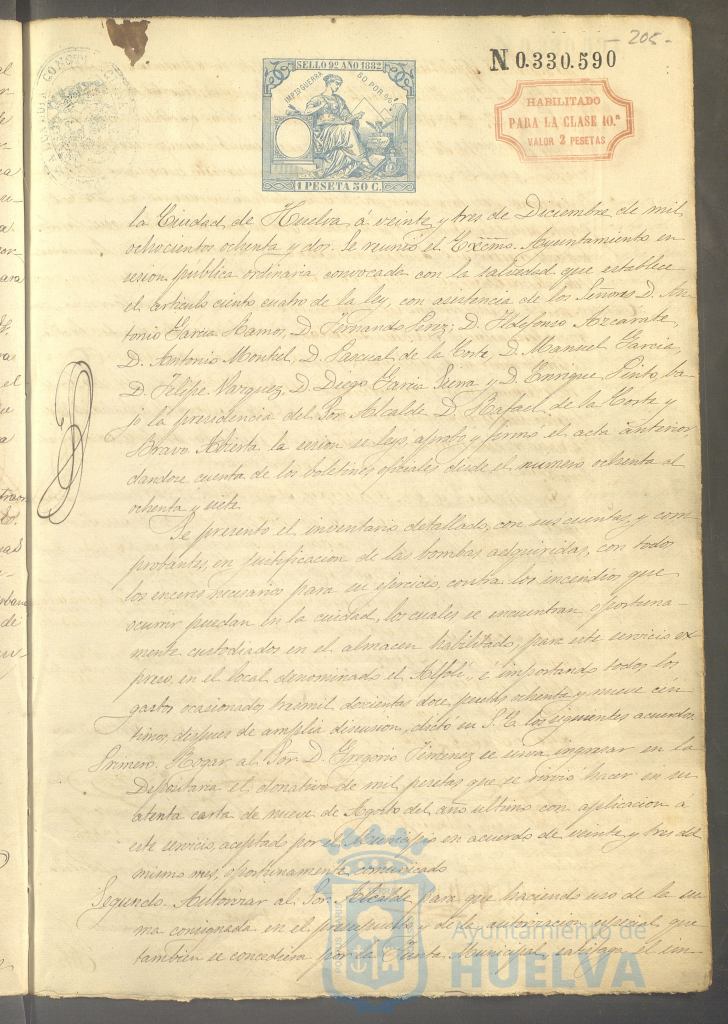 - 205 -
SELLO 9º AÑO 1882
IMPTO GUERRA 50 POR 00
1 PESETA 50 C.
N 0.330.590
HABILITADO
PARA LA CLASE 10.ª
VALOR 2 PESETAS
la Ciudad de Huelva á veinte y tres de Diciembre de mil
ochocientos ochenta y dos. Se reunió el Excmo. Ayuntamiento en
sesion pública ordinaria convocada con la
 que establece
el articulo ciento cuatro de la ley, con asistencia de los Señores D. An-
tonio Garcia Ramos, D. Fernando Perez, D. Ildefonso Azcarate,
D. Antonio Montiel, D. Pascual de la Corte, D. Manuel Garcia,
D. Felipe Vazquez, D. Diego Garcia
 y D. Enrique Pinto, ba-
jo la presidencia del Sor. Alcalde D. Rafael de la Corte y
Bravo. Abierta la sesion se leyó, aprobó y firmó el acta anterior,
dandose cuenta de los boletines oficiales desde el numero ochenta al
ochenta y siete.
Se presentó el inventario detallado, con sus cuentas y com-
probantes, en justificacion de las bombas adquiridas, con todos
los enceres necesarios para su ejercicio contra los incendios que
ocurrir puedan en la ciudad, los cuales se encuentran oportuna-
mente custodiados en el almacen habilitado, para este servicio ex-
preso, en el local denominado el Alfolí, é importando todos los
gastos ocasionados tresmil doscientas doce pesetas ochenta y nueve cén-
timos, despues de amplia discusion, dictó su S. E. los siguientes acuerdos.
Primero. Rogar al Sor. D. Gregorio Jimenez se sirva ingresar en la
Depositaria el donativo de mil pesetas que se sirvió hacer en su
atenta carta de nueve de Agosto del año ultimo con aplicacion á
este servicio, aceptado por el Municipio en acuerdo de veinte y tres del
mismo mes, oportunamente comunicado
Segundo. Autorizar al Sor. Alcalde para que haciendo uso de la su-
ma consignada en el presupuesto y de la autorizacion especial que
tambien se concediera por la Junta Municipal, satisfaga el im-
Ayuntamiento de
HUELVA